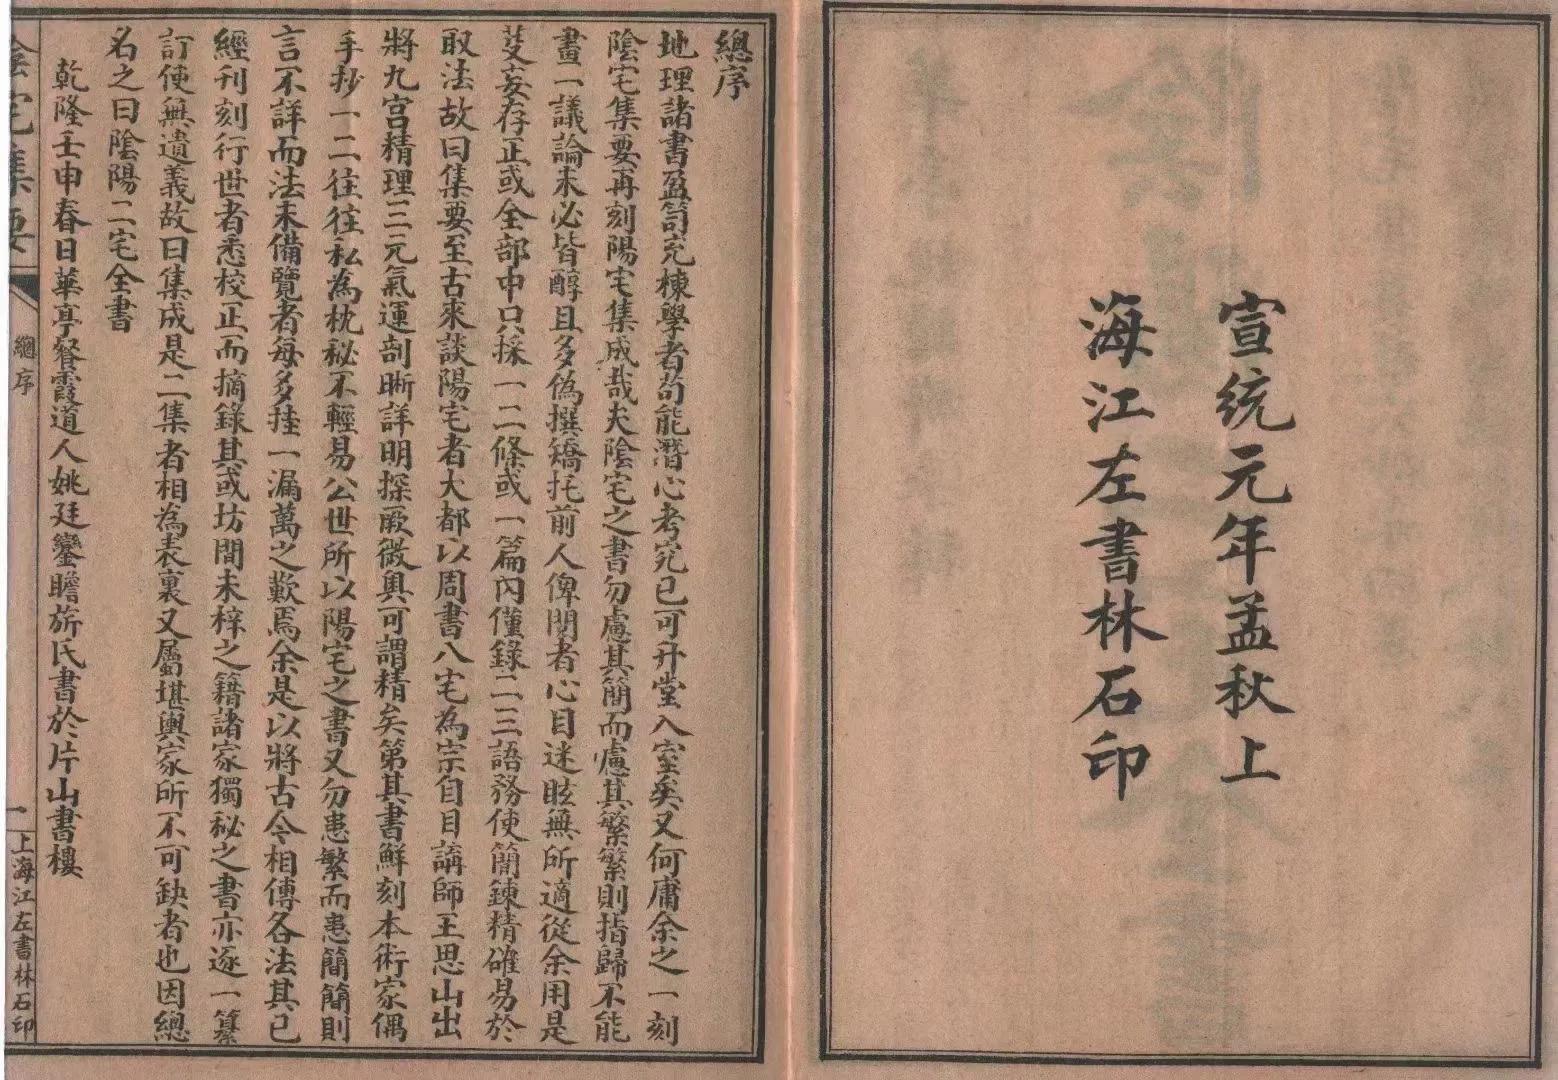 宣統元年孟秋上
海江左書林石印
總序
地理諸書盈笥充棟學者苟能潛心考究已可升堂入室矣又何庸余之一刻
陰宅集要再刻陽宅集成哉夫陰宅之書勿慮其簡而慮其繁繁則指歸不能
畫一議論未必皆醇且多偽撰矯托前人俾閱者心目迷眩無所適從余用是
芟妄存正或全部中只採一二條或一篇內僅錄二三語務使簡鍊精確易於
取法故曰集要至古來談陽宅者大都以周書八宅為宗自目講師王思山出
將九宮精理三元氣運剖晰詳明探厥微奧可謂精矣第其書鮮刻本術家偶
手抄一二往往私為枕秘不輕易公世所以陽宅之書又勿患繁而患簡簡則
言不詳而法未備覽者每多挂一漏萬之歎焉余是以將古今相傳各法其已
經刊刻行世者悉校正而摘錄其或坊間未梓之籍諸家獨秘之書亦逐一纂
訂使無遺義故曰集成是二集者相為表裏又屬堪輿家所不可缺者也因總
名之曰陰陽二宅全書
乾隆壬申春日華亭餐霞道人姚廷鑾瞻旂氏書於片山書樓
陰宅集要
總序
一
上海江左書林石印